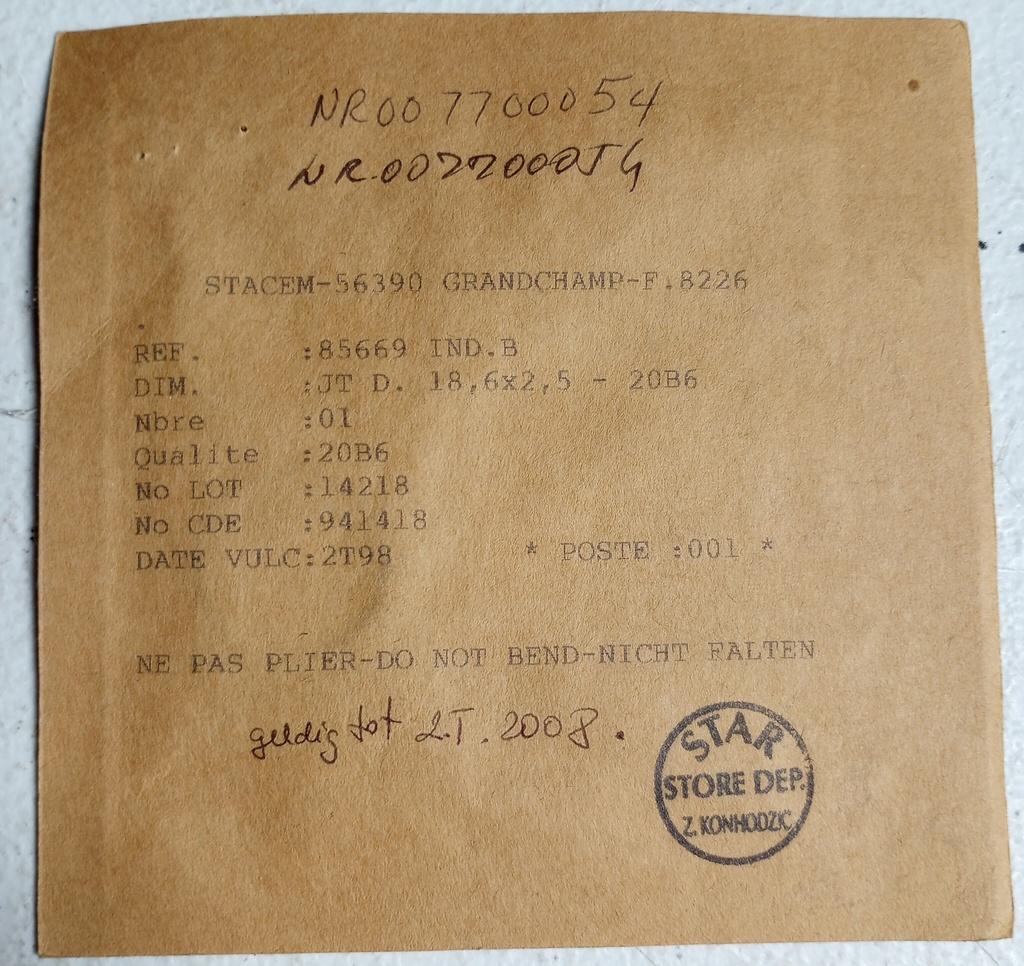 NR007700054
NR.007700054
STACEM-56390 GRANDCHAMP-F.8226
REF. :85669 IND.B
DIM. :JT D. 18,6x2,5 - 20B6
Nbre :01
Qualite :20B6
No LOT :14218
No CDE :941418
DATE VULC:2T98 * POSTE :001 *
NE PAS PLIER-DO NOT BEND-NICHT FALTEN
geldig tot 2.T. 2008.
STAR
STORE DEP.
Z. KONHODZIC